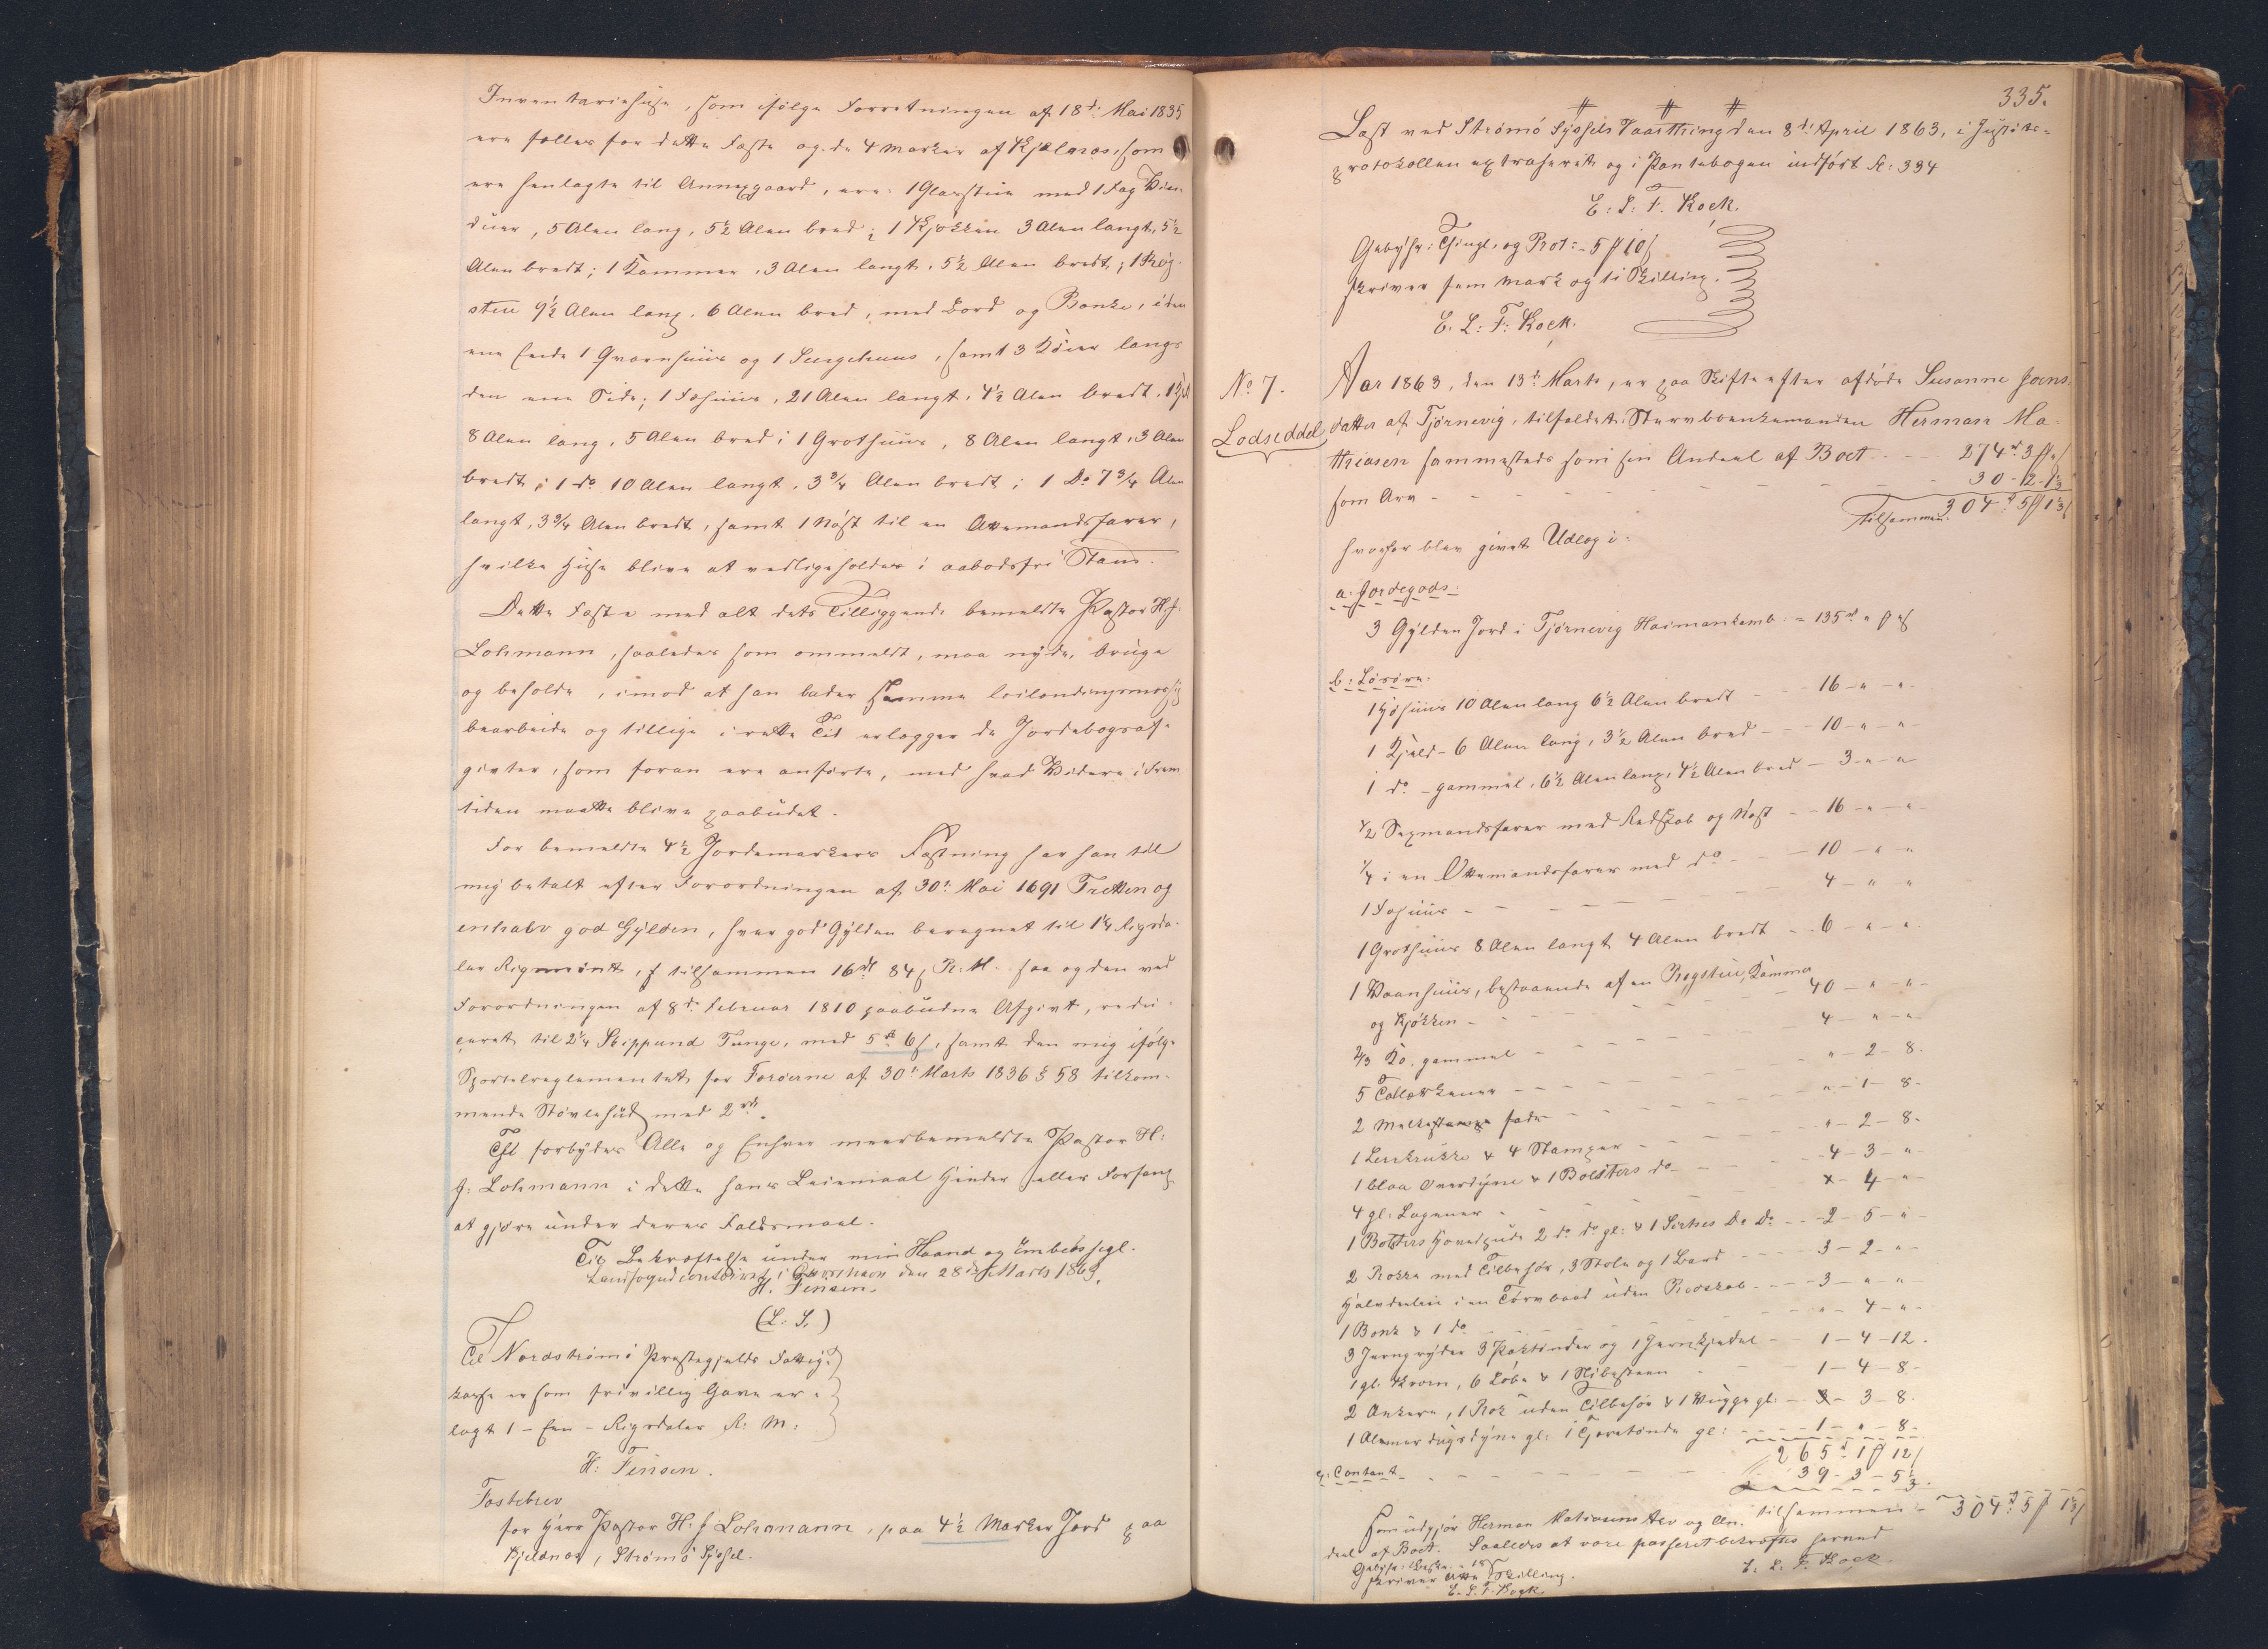 Inventariehuse, som ifølge Forretningen af 18de Mai 1835
ere fælles for dette Fæste og de 4 Marker af Kjælnæs, som
ere henlagte til Annexgaard, ere: 1 Glasstue med 1 Fag Vin-
duer, 5 Alen lang, 5½ Alen bred; 1 Kjøkken 3 Alen langt, 5½
Alen bredt; 1 Kammer, 3 Alen langt, 5½ Alen bredt; 1 Røg-
stue 9½ Alen lang, 6 Alen bred, med Bord og Bænke, i den
ene Ende 1 Qværnhuus og 1 Sengehuus, samt 3 Køier langs
den ene Side; 1 Fæhuus, 21 Alen langt, 4½ Alen bredt,
8 Alen lang, 5 Alen bred; 1 Grothuus, 8 Alen langt, 3 Alen
bredt; 1 do 10 Alen langt, 3¾ Alen bredt; 1 Do 7¾ Alen
langt, 3¾ Alen bredt, samt 1 Nøst til en Ottemandsfarer,
hvilke Huse blive at vedligeholdes i aabodsfri Stand.
Dette Fæste med alt dets Tilliggende bemeldte Pastor H. J.
Lohmann, saaledes som ommeldt, maa nyde, bruge
og beholde, imod at han lader samme loilændingsmæssig
bearbeide og tillige i rette Tid erlægger de Jordebogsaf-
givter, som foran ere anførte, med hvad Videre i Frem
tiden maatte blive paabudet.
For bemeldte 4½ Jordemarkers Fæstning har han til
mig betalt efter Forordningen af 30te Mai 1691 Tretten og
enhalv god Gylden, hver god Gylden beregnet til 1¼ Rigsda-
ler Rigsmønt, tilsammen 16rd 84s R: M. saa og den ved
Forordningen af 8de Februar 1810 paabudne Afgivt, redu-
ceret til 2¼ Skippund Tunge, med 5rd 6s, samt den mig ifølge
Sportelreglementet for Færøerne af 30te Marts 1836 § 58 tilkom-
mende Støvlehud med 2rd.
Thi forbydes Alle og Enhver meerbemeldte Pastor H:
J: Lohmann i dette hans Leiemaal Hinder eller Forfang
at gjøre under deres Faldsmaal.
Til Bekræftelse under min Haand og Embedssegl.
Landfogedcontoiret i Thorshavn den 28de Marts 1863.
H. Finsen.
(L. S.)
Til Nordstrømø Præstegjelds Fattig-
kasse er som frivillig Gave er-
lagt 1 - Een - Rigsdaler R: M:
H: Finsen.
Fæstebrev
for Herr Pastor H. J Lohmann, paa 4½ Marker Jord paa
Kjelnæs, Strømø Syssel.
335.
Læst ved Strømø Syssels Vaarthing den 8de April 1863, i Justits-
protokollen extraheret og i Pantebogen indført Fol: 334
E: L: F. Kock.
Gebyhr: Thingl. og Prot: 5 ℔ 10 s
skriver fem Mark og ti Skilling.
E. L: F: Kock.
No 7.
Lodseddel
Aar 1863, den 13de Marts, er paa Skifte efter afdøde Susanne Joens-
datter af Tjørnevig, tilfaldet Stervboenkemanden Herman Ma-
thiasen sammesteds som sin Andeel af Boet - - - 274rd 3 ℔ " s
som Arv - - - 30 - 2 - 1⅓
Tilsammen 304rd 5 ℔ 1⅓ s
hvorfor blev givet Udlæg i:
a: Jordegods:
3 Gylden Jord i Tjørnevig Haimankamb - 135rd " ℔ " s
b: Løsøre:
1 Høhuus 10 Alen lang 6½ Alen bredt - - 16 - " - "
1 Hjald - 6 Alen lang, 3½ Alen bred - - 10 - " - "
1 do - gammel, 6½ Alen lang, 4½ Alen bred - 3 - " - "
½ Sexmandsfarer med Redskab og Nøst - - 16 - " - "
¼ i en Ottemandsfarer med do - - 10 - " - "
1 Fæhuus - - - 4 - " - "
1 Grothuus 8 Alen langt 4 Alen bredt - - 6 - " - "
1 Vaanhuus, bestaaende af en Røgstue, Kammer
og Kjøkken - - - 40 - " - "
⅔ Ko, gammel - - - 4 - " - "
5 Tallerkener - - - " - 2 - 8 -
2 Melkestampe fade - - - " - 1 - 8 -
1 Leerkrukke & 4 Stamper - - - " - 2 - 8 -
1 blaa Overdyne & 1 Bolsters do - - - 4 - 3 - "
4 gl: Lagener - - - " - 4 - "
1 Bolsters Hovedpude 2 do do gl: & 1 Sirtses Do Do - - 2 - 5 - "
2 Rokke med Tilbehør, 3 Stole og 1 Bord - - - 3 - 2 - "
Halvdelen i en Tørvbaad uden Redskab - - - 3 - " - "
1 Bænk & 1 do - - - " - 4 - "
3 Jerngryder 3 Pottinder og 1 Jernkjedel - - 1 - 4 - 12.
1 gl. Kværn, 6 Løbe & 1 Slibesteen - - 1 - 4 - 8 -
2 Ankere, 1 Rok uden Tilbehør & 1 Vugge gl: - - 3 - 8.
1 Alunerdugsdyne gl: 1 Tjæretønde gl: - - - 1 - " - 8 -
265rd 1 ℔ 12 s
c: Contant - - - 39 - 3 - 5⅓
tilsammen - 304rd 5 ℔ 1⅓ s
som udgjør Herman Mathiasens Arv og An-
deel af Boet. Saaledes at være passeret bekræftes herved
E. L. F. Kock.
skriver Skilling.
E. L. F. Kock.